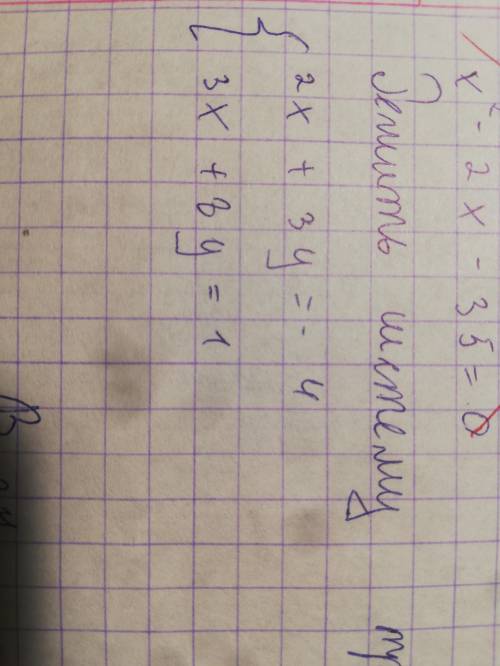 x² - 2x - 35 = 0
Решить систему
{ 2x + 3y = -4
3x + 8y = 1